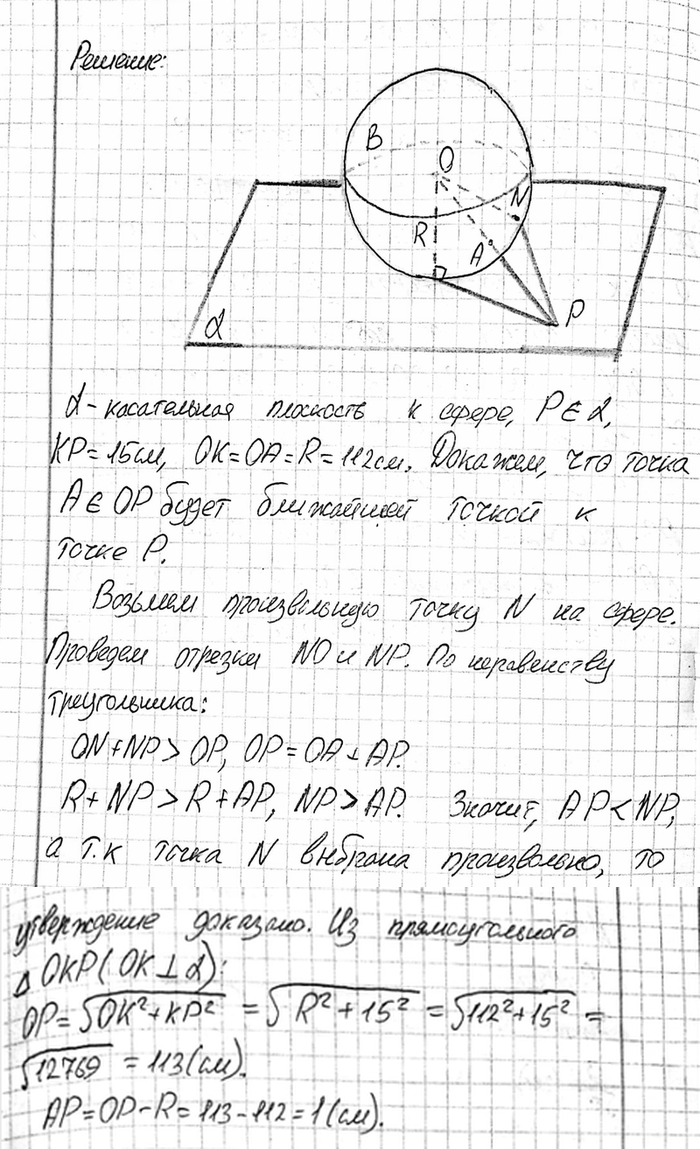 Решение:
B
O
N
R
A
P
α
α - касательная плоскость к сфере, P ∈ α,
KP = 15 см, OK = OA = R = 112 см. Докажем, что точка
A ∈ OP будет ближайшей точкой к
точке P.
Возьмем произвольную точку N на сфере.
Проведем отрезки NO и NP. По неравенству
треугольника:
ON + NP > OP, OP = OA + AP.
R + NP > R + AP, NP > AP. Значит, AP < NP,
а т.к точка N выбрана произвольно, то
утверждение доказано. Из прямоугольного
Δ OKP (OK ⊥ α):
OP = √(OK² + KP²) = √(R² + 15²) = √(112² + 15²) =
√12769 = 113 (см).
AP = OP - R = 113 - 112 = 1 (см).